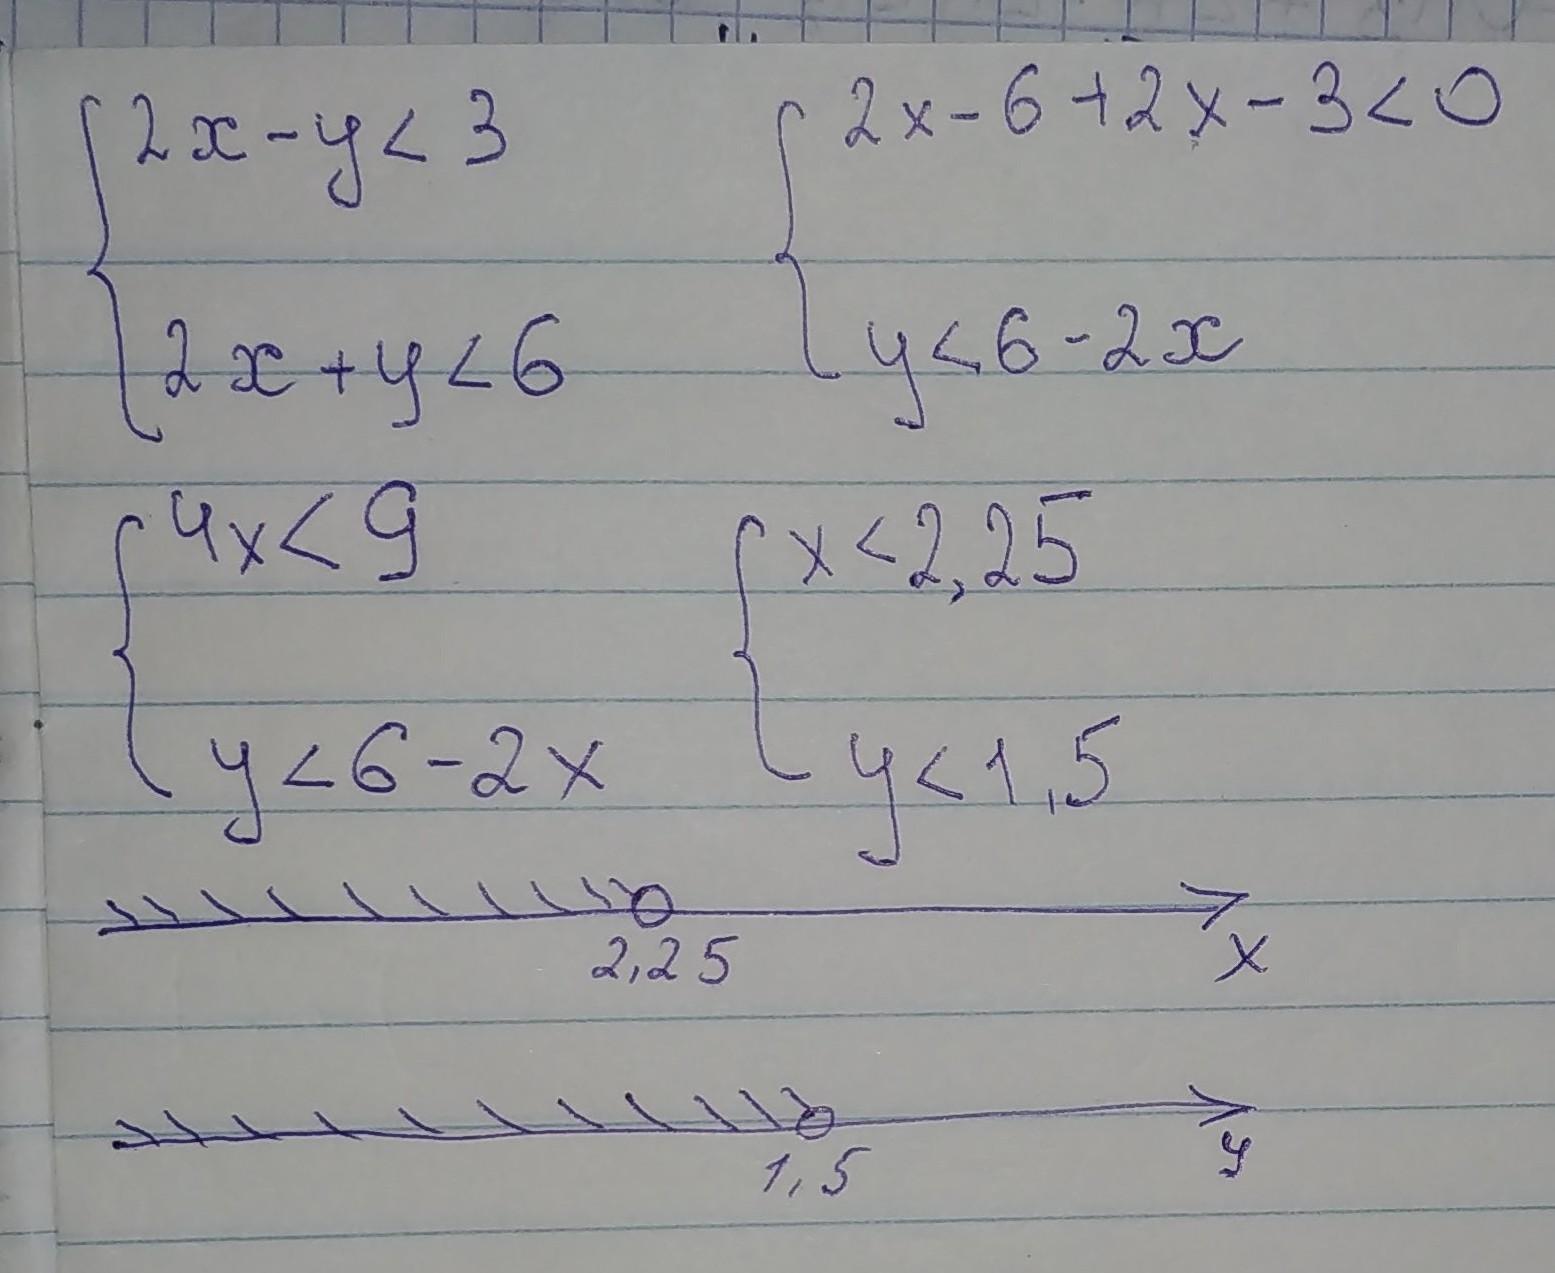 2x - y < 3
2x + y < 6
2x - 6 + 2x - 3 < 0
y < 6 - 2x
4x < 9
y < 6 - 2x
x < 2,25
y < 1,5
2,25
x
1,5
y